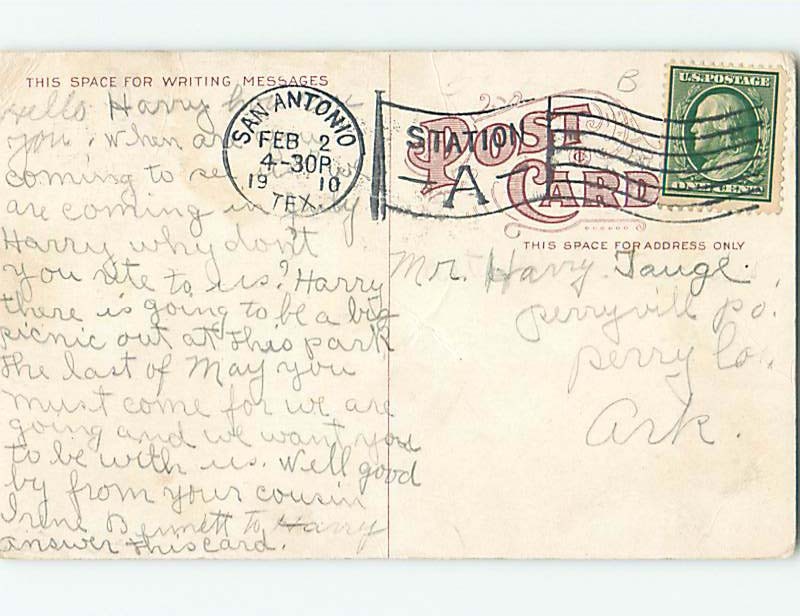 THIS SPACE FOR WRITING MESSAGES
Hello Harry
you. When are
coming to
are coming in
Harry why don't
you rite to us? Harry
there is going to be a big
picnic out at this park
the last of May you
must come for we are
going and we want you
to be with us. Well good
by from your cousin
Irene Bennett To Harry
answer this card.
SAN ANTONIO
FEB 2
4-30P
19 10
TEX.
STATION
A
POST
CARD
B
U.S. POSTAGE
ONE CENT
THIS SPACE FOR ADDRESS ONLY
Mr. Harry Tauge.
perryvill po.
perry Co.
Ark.